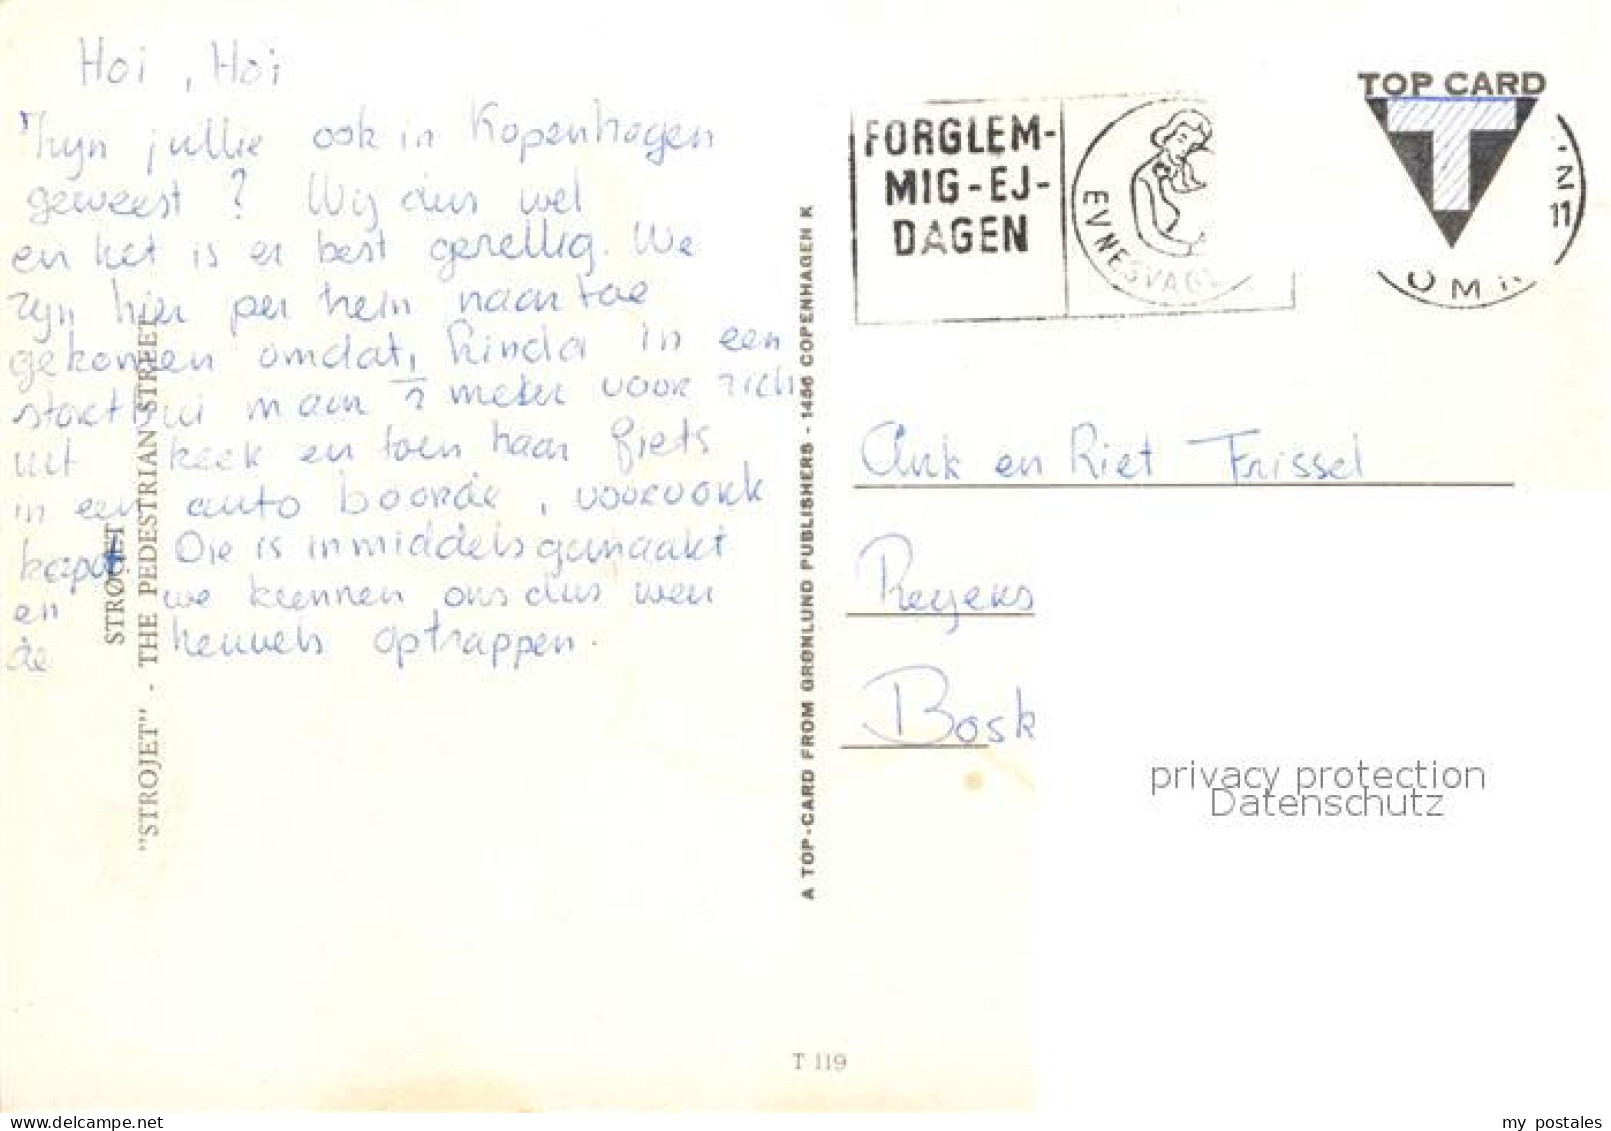 Hoi, Hoi
Zijn jullie ook in Kopenhagen
geweest? Wij dus wel
en het is er best gezellig. We
zijn hier per trein naar toe
gekomen omdat, Linda in een
stortbui maar ½ meter voor zich
uit keek en toen haar fiets
in een auto boorde, voorvork
kapot Die is inmiddels gemaakt
en we kunnen ons dus weer
de heuvels optrappen.
STRØGET
"STROJET" - THE PEDESTRIAN STREET
A TOP-CARD FROM GRØNLUND PUBLISHERS - 1466 COPENHAGEN K
T 119
FORGLEM-
MIG-EJ-
DAGEN
EVNESVAGE
TOP CARD
T
Ank en Riet Frissel
Reyers
Bosk
privacy protection
Datenschutz
delcampe.net
my_postales